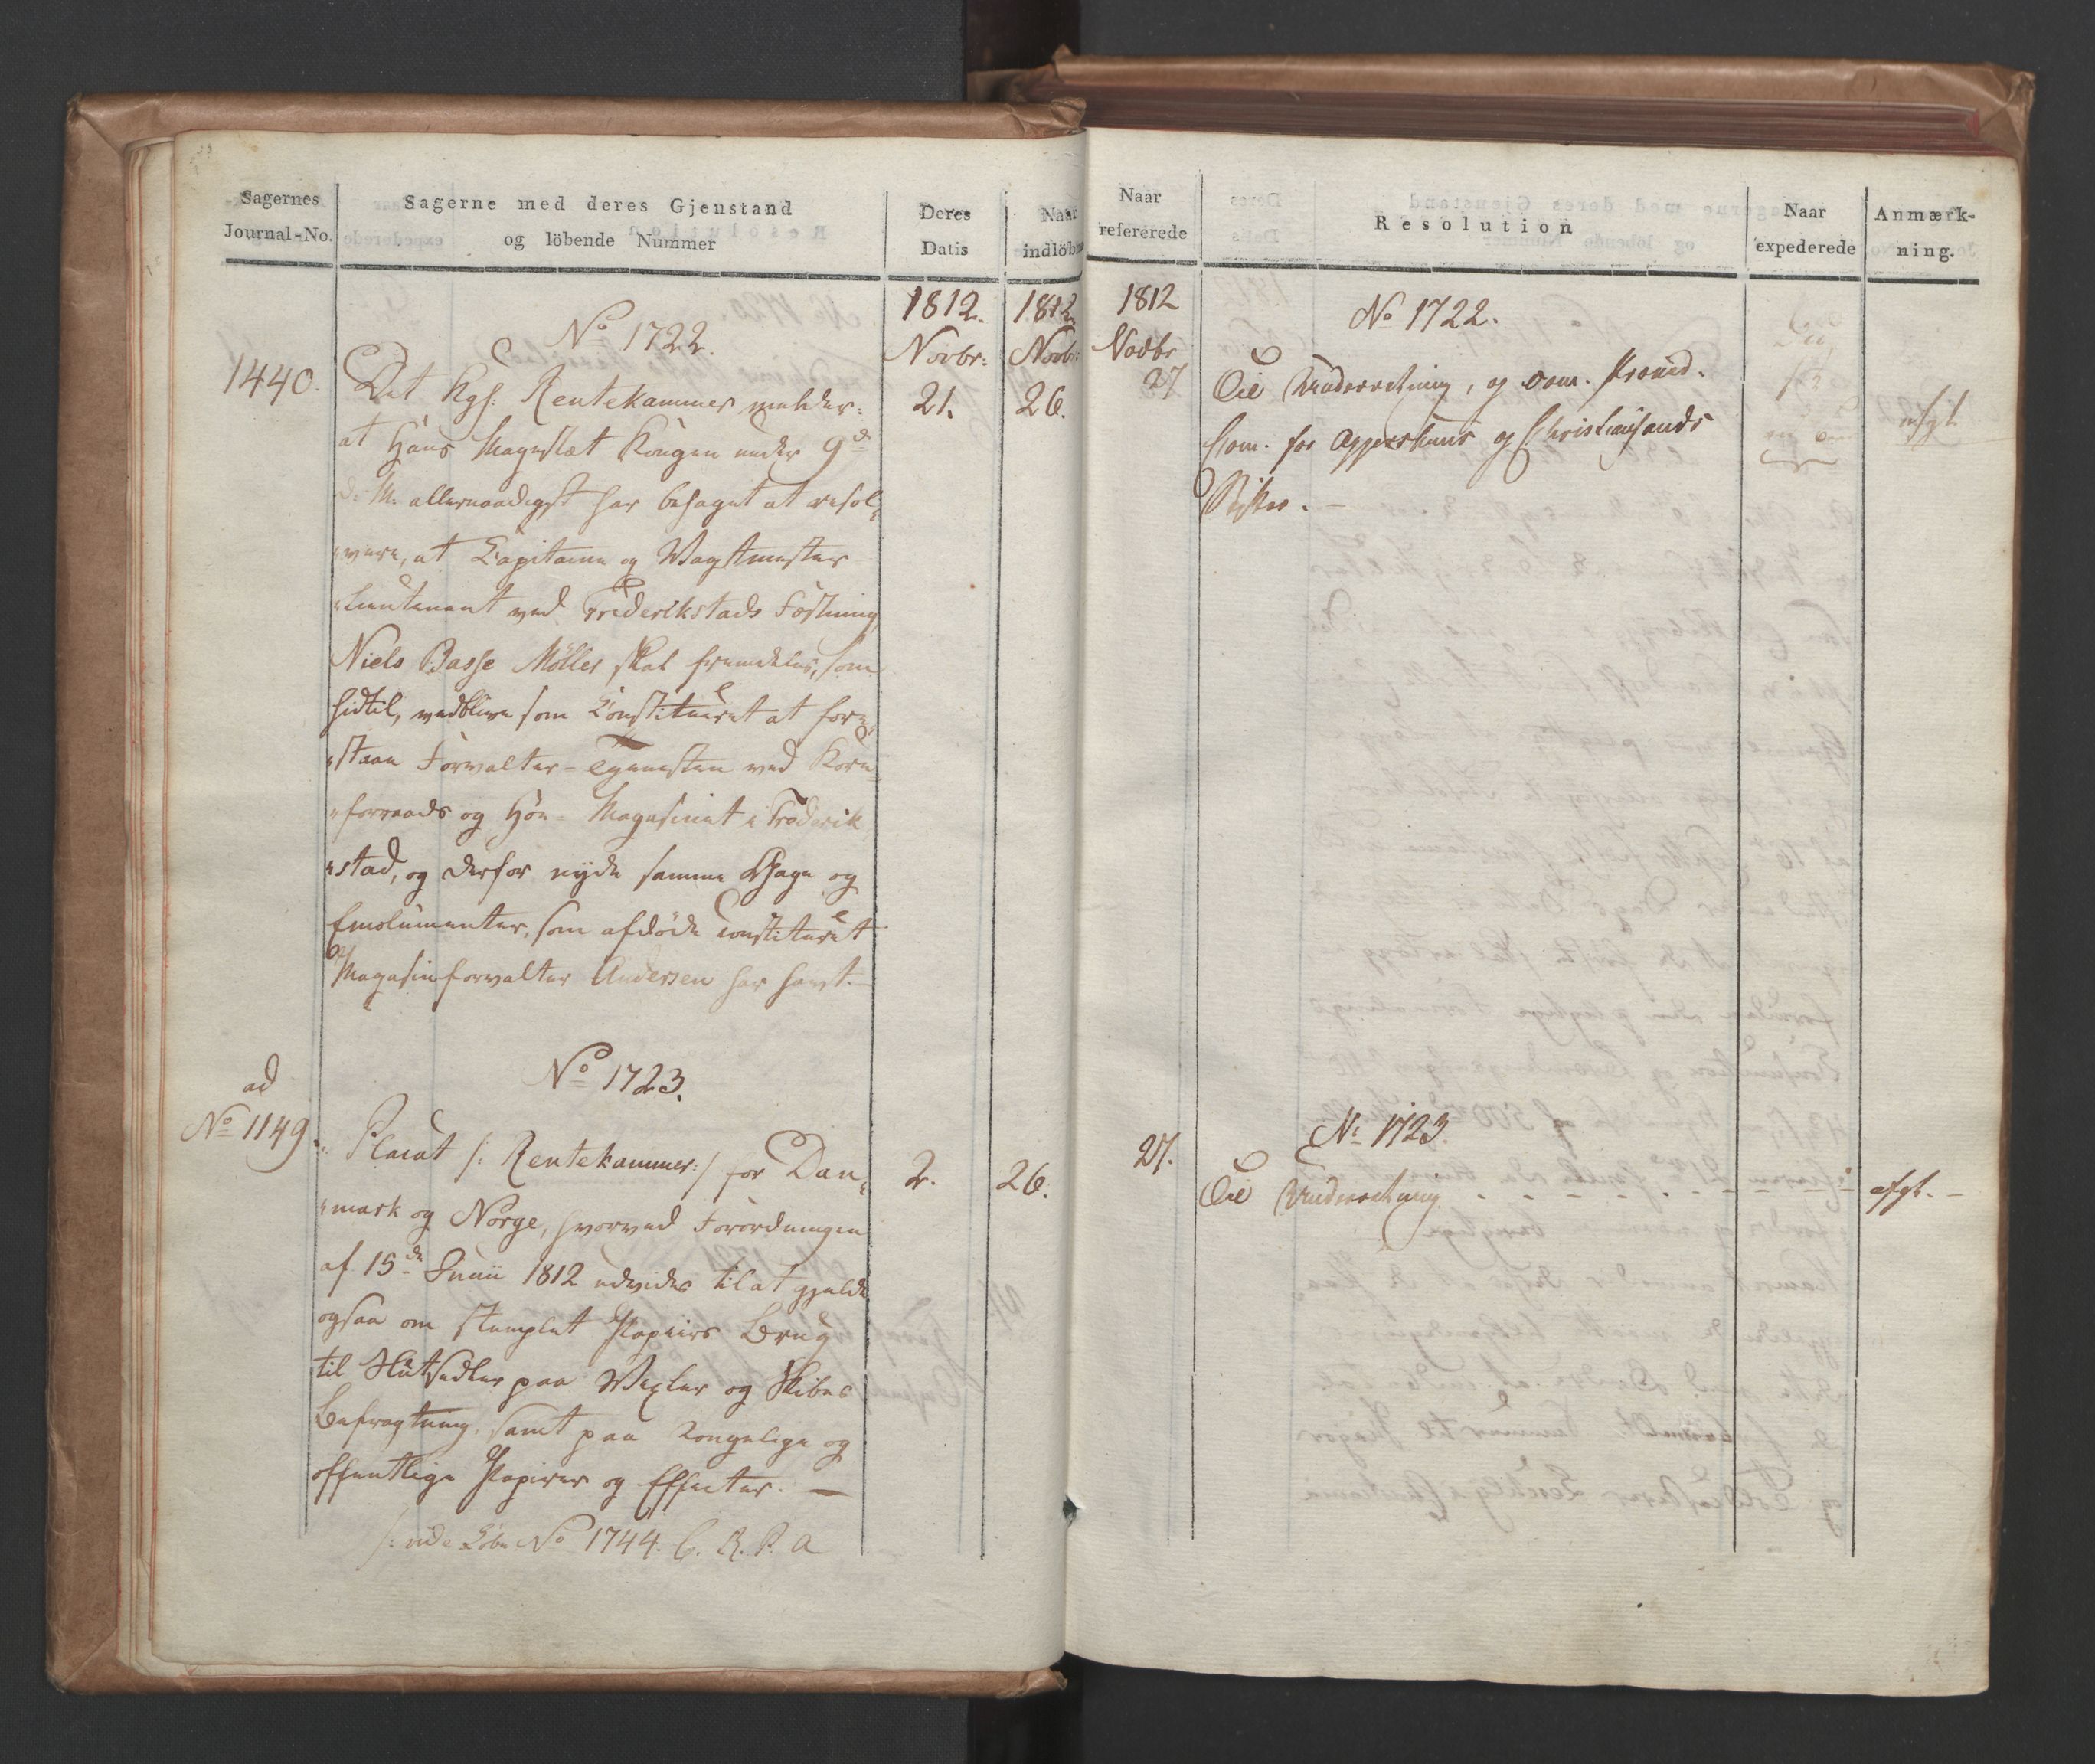 Sagernes
Journal-No.
Sagerne med deres Gjenstand
og löbende Nummer
Deres
Datis
Naar
indlöbne
1812.
1812.
Novbr:
Novbr:
No 1722.
1440.
Det Kgl: Rentekammer melder:
21.
26.
at Hans Mayestæt Kongen under 9de
d: M: allernaadigst har behaget at resol-
"vere, at Capitaine og Wagtmester
"Lieutenant ved Frederikstads Fæstning
Niels Basse Möller skal fremdeles, som
hidtil, vedblive som Constitueret at fore-
"staae Forvalter-Tjenesten ved Korn-
"forraads og Höe-Magasinet i Frederik
"stad, og derfor nyde samme Gage og
Emolumenter, som afdöde constitueret
Magasinforvalter Andersen har havt.
No 1723.
ad
No 1149.
Placat /: Rentekammer :/ for Dan-
2.
26.
"mark og Norge, hvorved Forordningen
af 15de Junii 1812 udvides til at gjelde
ogsaa om stemplet Papiirs Brug
til Slutsedler paa Wexler og Skibes
Befragtning, samt paa Kongelige og
offentlige Papirer og Effecter. —
/: vide Löbe No 1744. C. R. P. A
Naar
refererede
Resolution
Naar
expederede
Anmærk-
ning.
1812
Novbr
No 1722.
27
Til Underretning, og com. Proviid.
Com. for Aggershuus og Christiansands
Stifter. —
afgt
No 1723.
27.
Til Underretning
afgt. —